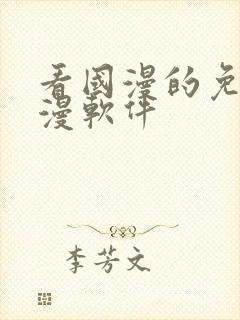 看國漫的免
漫軟件
李芳文